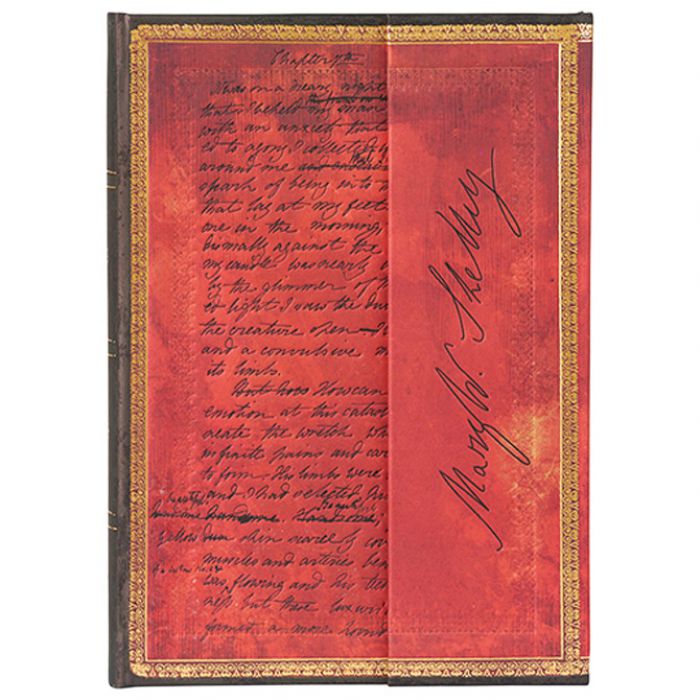 Chapter 7th
It was on a dreary night
that I beheld my man
with an anxiety that
ed to agony I collected
around me and endea
spark of being into
that lay at my feet
one in the morning,
dismally against the
my candle was nearly
by the glimmer of
ed light I saw the du
the creature open — I
and a convulsive m
its limbs.
But how How can
emotion at this catas
create the wretch wh
infinite pains and car
to form. His limbs were
and I had selected
handsome. Handsome,
Yellow dun skin scarcely cov
muscles and arteries ben
was flowing and his tee
ness but these luxuri
formed a more horrid
Mary W. Shelley